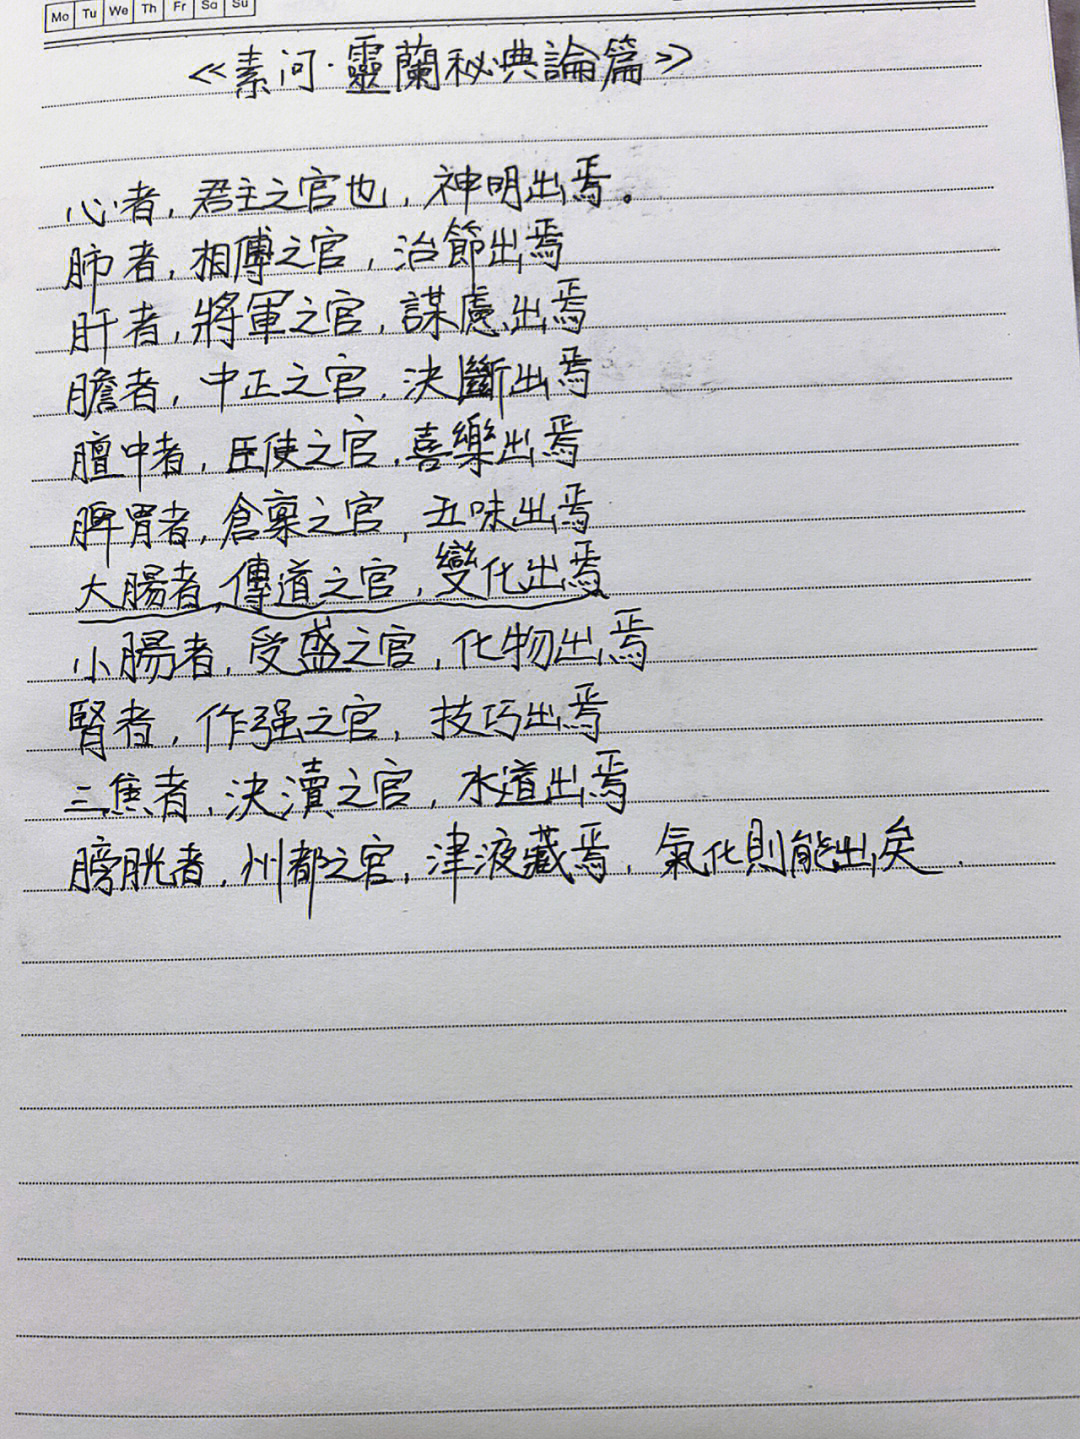 Mo Tu We Th Fr Sa Su
《素问·靈蘭秘典論篇》
心者,君主之官也,神明出焉。
肺者,相傅之官,治節出焉
肝者,將軍之官,謀慮出焉
膽者,中正之官,決斷出焉
膻中者,臣使之官,喜樂出焉
脾胃者,倉稟之官,五味出焉
大腸者,傳道之官,變化出焉
小腸者,受盛之官,化物出焉
腎者,作强之官,技巧出焉
三焦者,決瀆之官,水道出焉
膀胱者,州都之官,津液藏焉,氣化則能出矣.